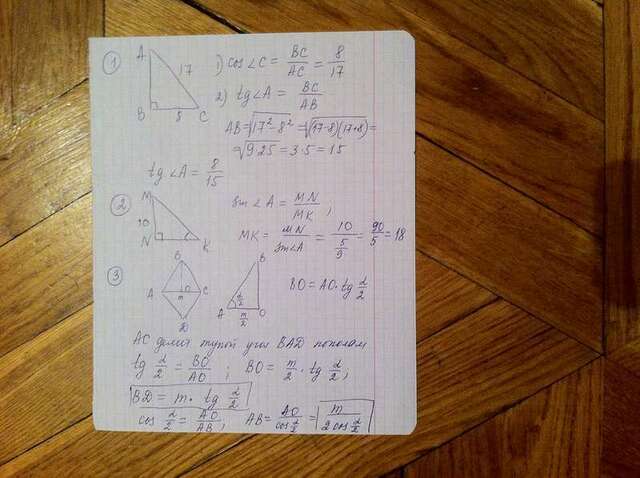 1
A
17
B
8
C
1) cos∠C = BC/AC = 8/17
2) tg∠A = BC/AB
AB = √(17² - 8²) = √((17-8)(17+8)) =
= √(9·25) = 3·5 = 15
tg∠A = 8/15
2
M
10
N
K
Sin∠A = MN/MK ;
MK = MN/Sin∠A = 10/(5/9) = 90/5 = 18
3
B
A
O
C
m
D
B
α/2
A
m/2
O
BO = AO·tg α/2
AC делит тупой угол BAD пополам
tg α/2 = BO/AO ; BO = m/2 · tg α/2 ;
BD = m · tg α/2
cos α/2 = AO/AB ; AB = AO/cos α/2 = m/(2 cos α/2)